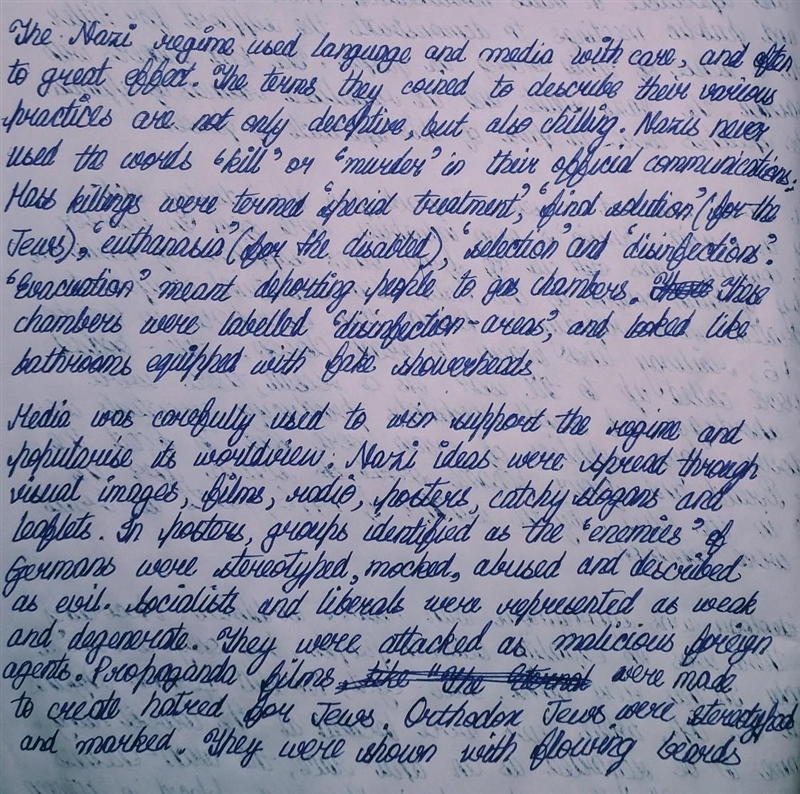 The Nazi regime used language and media with care, and often
to great effect. The terms they coined to describe their various
practices are not only deceptive, but also chilling. Nazis never
used the words "kill" or "murder" in their official communications.
Mass killings were termed "special treatment", "final solution" (for the
Jews), "euthanasia" (for the disabled), "selection" and "disinfections".
"Evacuation" meant deporting people to gas chambers. These
chambers were labelled "disinfection-areas", and looked like
bathrooms equipped with fake showerheads
Media was carefully used to win support the regime and
popularise its worldview. Nazi ideas were spread through
visual images, films, radio, posters, catchy slogans and
leaflets. In posters, groups identified as the "enemies" of
Germans were stereotyped, mocked, abused and described
as evil. Socialists and liberals were represented as weak
and degenerate. They were attacked as malicious foreign
agents. Propaganda films, like "The Eternal were made
to create hatred for Jews. Orthodox Jews were stereotyped
and marked. They were shown with flowing beards